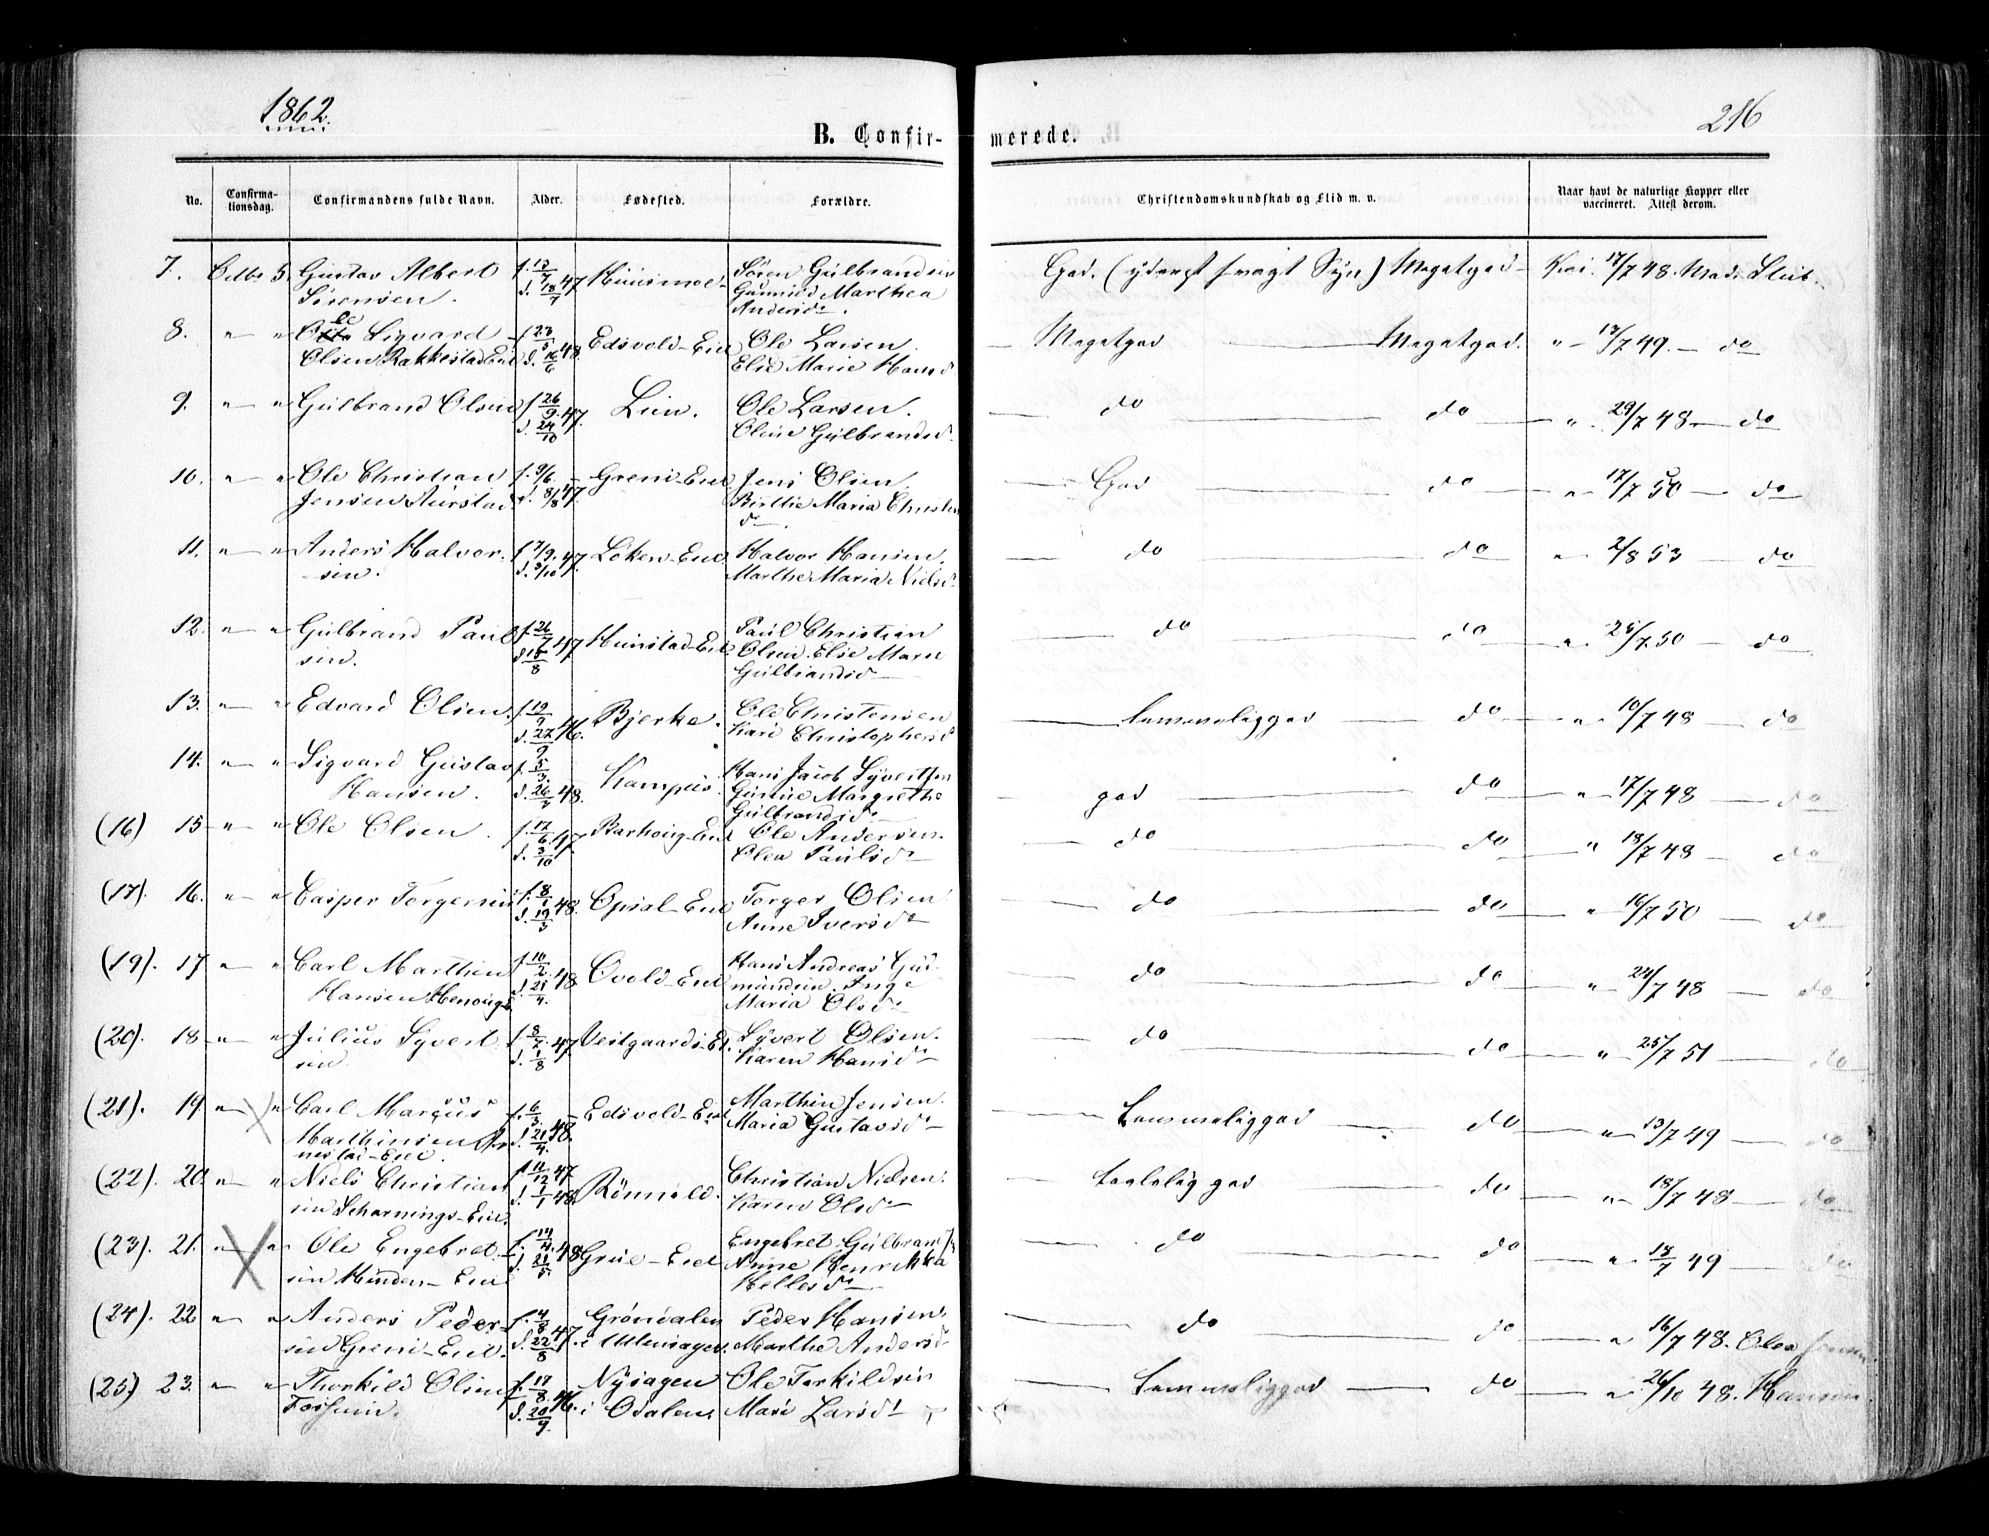 1862.
216
B. Confirmerede.
No.
Confirmationsdag.
Confirmandens fulde Navn.
Alder.
Fødested.
Forældre.
Christendomskundskab og Flid m. v.
Naar havt de naturlige Kopper eller vaccineret. Attest derom.
7. Octbr 5. Gustav Albert f. 47 Søren Gulbrandsen God. (yderst svagt Syn) Megetgod 17/7 48. Mad.
Sørensen. d. 18/7 Marthea
Andersd.
8. " " Ole Sigvard f. 23/5 48. Edsvold-Eie Ole Larsen. Megetgod Megetgod. " 13/7 49. do
Olsen Rakkestad Eie d. 16/6 Else Marie Hansd
9. " " Gulbrand Olsen f. 26/9 47. Lien. Ole Larsen. do do " 29/7 48 do
d. 24/10 Oline Gulbrandsd.
10. " " Ole Christian f. 9/6 47. Greni-Eie Jens Olsen. God do " 17/7 50 do
Jensen d. 8/8 Birthe Maria
d.
11. " " Anders Halvor- f. 7/9 47. Løken-Eie Halvor Hansen. do do " 2/8 53 do
sen. d. 3/10 Marthe Maria Nielsd.
12. " " Gulbrand Paul f. 26/7 47 Hunstad-Eie Paul Christian do do " 25/7 50 do
sen. d. 15/8 Olsen. Else Marie
Gulbrandsd
13. " " Edvard Olsen. f. 19/9 46. Bjerke. Ole Christensen temmeliggod do " 10/7 48 do
d. 27/9 Kari Christophersd
14. " " Sigvard Gustav f. 5/3 48. Kampus. Hans Jacob Syvertsen god do " 17/7 48 do
Hansen. d. 26/3 Margrethe
Gulbrandsd
(16) 15 " " Ole Olsen. f. 17/6 47. Ole Andersen. do do " 18/7 48 do
d. 3/10 Olea Paulsd
(17). 16. " " Casper Torgersen f. 8/1 48. Opsal-Eie Torger Olsen do do " 16/7 50 do
d. 19/3 Anne Iversd
(19). 17 " " Carl Marthin f. 10/2 48 Ovold-Eie Hans Andreas Gud- do do " 24/7 48 do
Hansen d. 25/4. mundsen. Inge
Maria Olsd
(20). 18 " " Julius Syvert f. 8/7 47 Vestgaards-E. Syvert Olsen. do do " 25/7 51 do
sen d. 1/8 Karen Hansd
(21). 19 " " Carl Marcus f. 6/3 48. Edsvold-Eie Marthin Jensen. temmeliggod do " 13/7 49 do
Marthinsen d. 21/4. Maria Gustavsd
(22). 20 " " Niels Christian f. 11/12 47 Christian Nielsen. taalelig god do " 18/7 48 do
sen d. 1/1 48. Karen Olsd
(23). 21. " " Ole Engebret f. 14/4. 48 Grue-Eie Engebret do do " 18/7 49 do
sen d. 21/5. Anne Henrikka
Hellesd
(24). 22 " " Anders Peder- f. 4/8 47. Grøndalen Peder Hansen. do do " 16/7 48. Olea
sen Greni-Eie. d. 22/8 i Ullensager. Marthe Andersd
(25) 23. " " Thorkild Olsen f. 17/8. 46. Nysagen Ole Torkildsen temmeliggod do " 26/10 48. Hansen
Fossum. d. 20/9. i Odalen. Mari Larsd